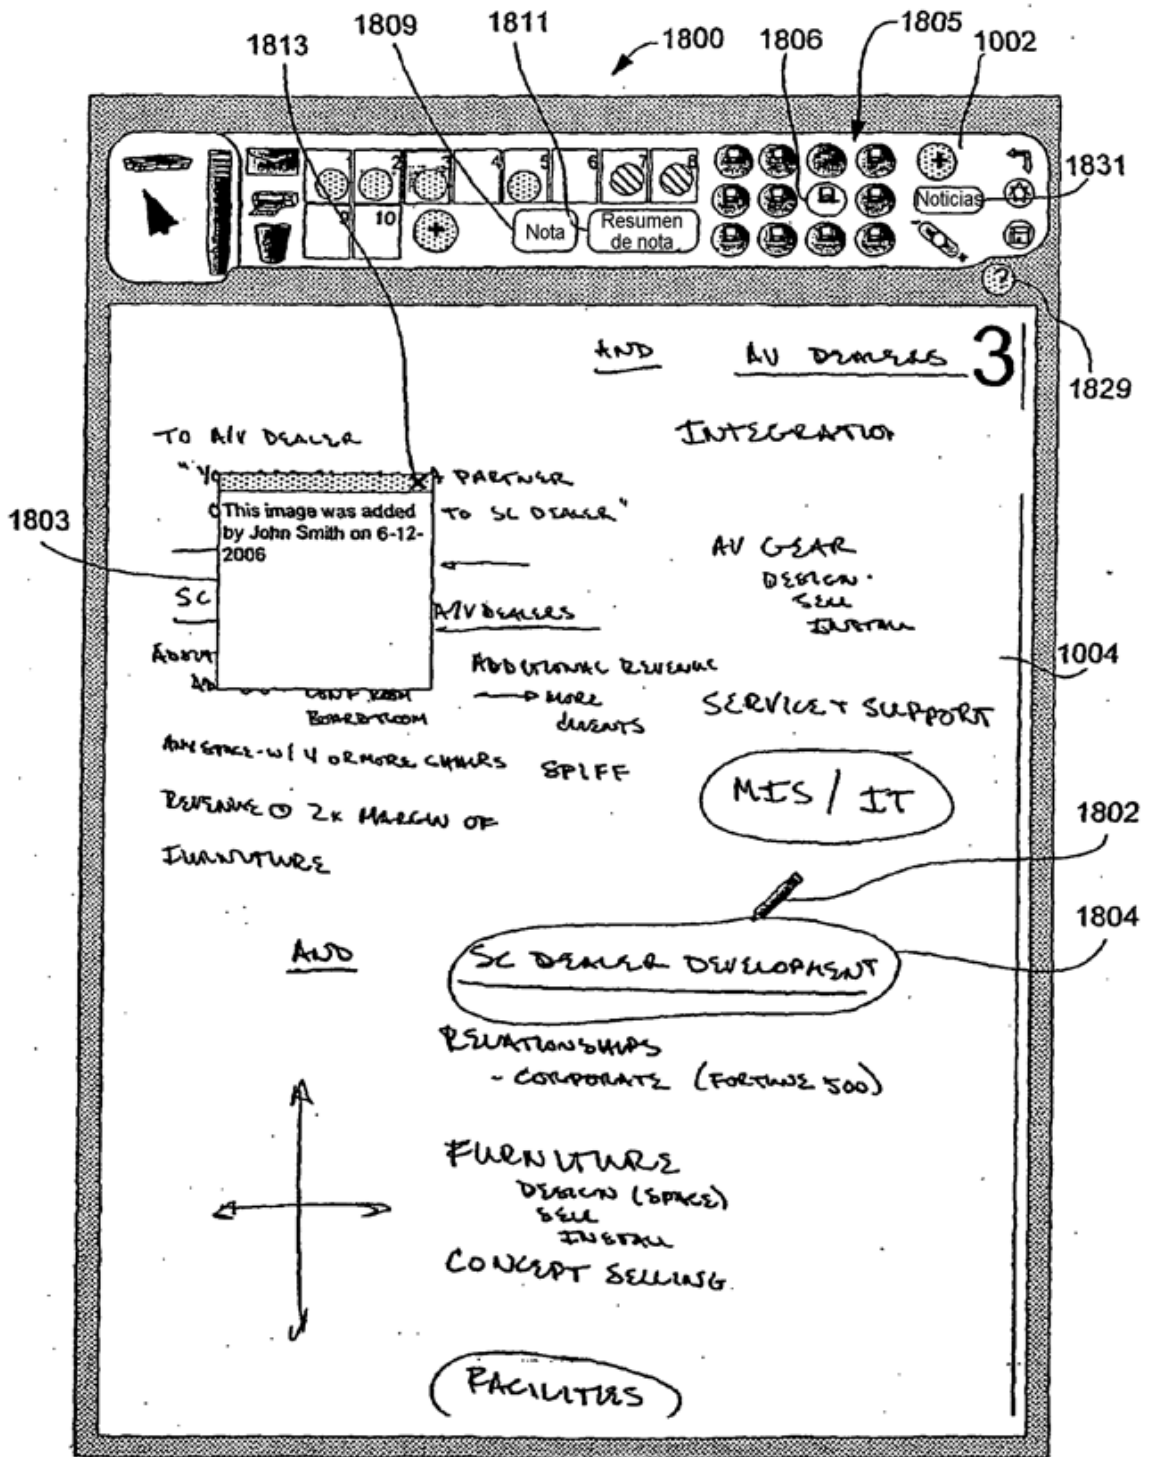 1813
1809
1811
1800
1806
1805
1002
1831
1829
1803
1004
1802
1804
1 2 3 4 5 6 7 8
9 10
Nota
Resumen
de nota
Noticias
?
AND
AV DEALERS
3
TO A/V DEALER
INTEGRATION
"Yo
A PARTNER
TO SC DEALER"
This image was added
by John Smith on 6-12-
2006
AV GEAR
DESIGN
SELL
INSTALL
SC
A/V DEALERS
ADDITIONAL REVENUE
MORE
CLIENTS
CONF ROOM
BOARDROOM
SERVICE + SUPPORT
ANY SPACE - W/ 4 OR MORE CHAIRS
SPIFF
MIS / IT
REVENUE @ 2x MARGIN OF
FURNITURE
AND
SC DEALER DEVELOPMENT
RELATIONSHIPS
- CORPORATE (FORTUNE 500)
FURNITURE
DESIGN (SPACE)
SELL
INSTALL
CONCEPT SELLING
FACILITIES